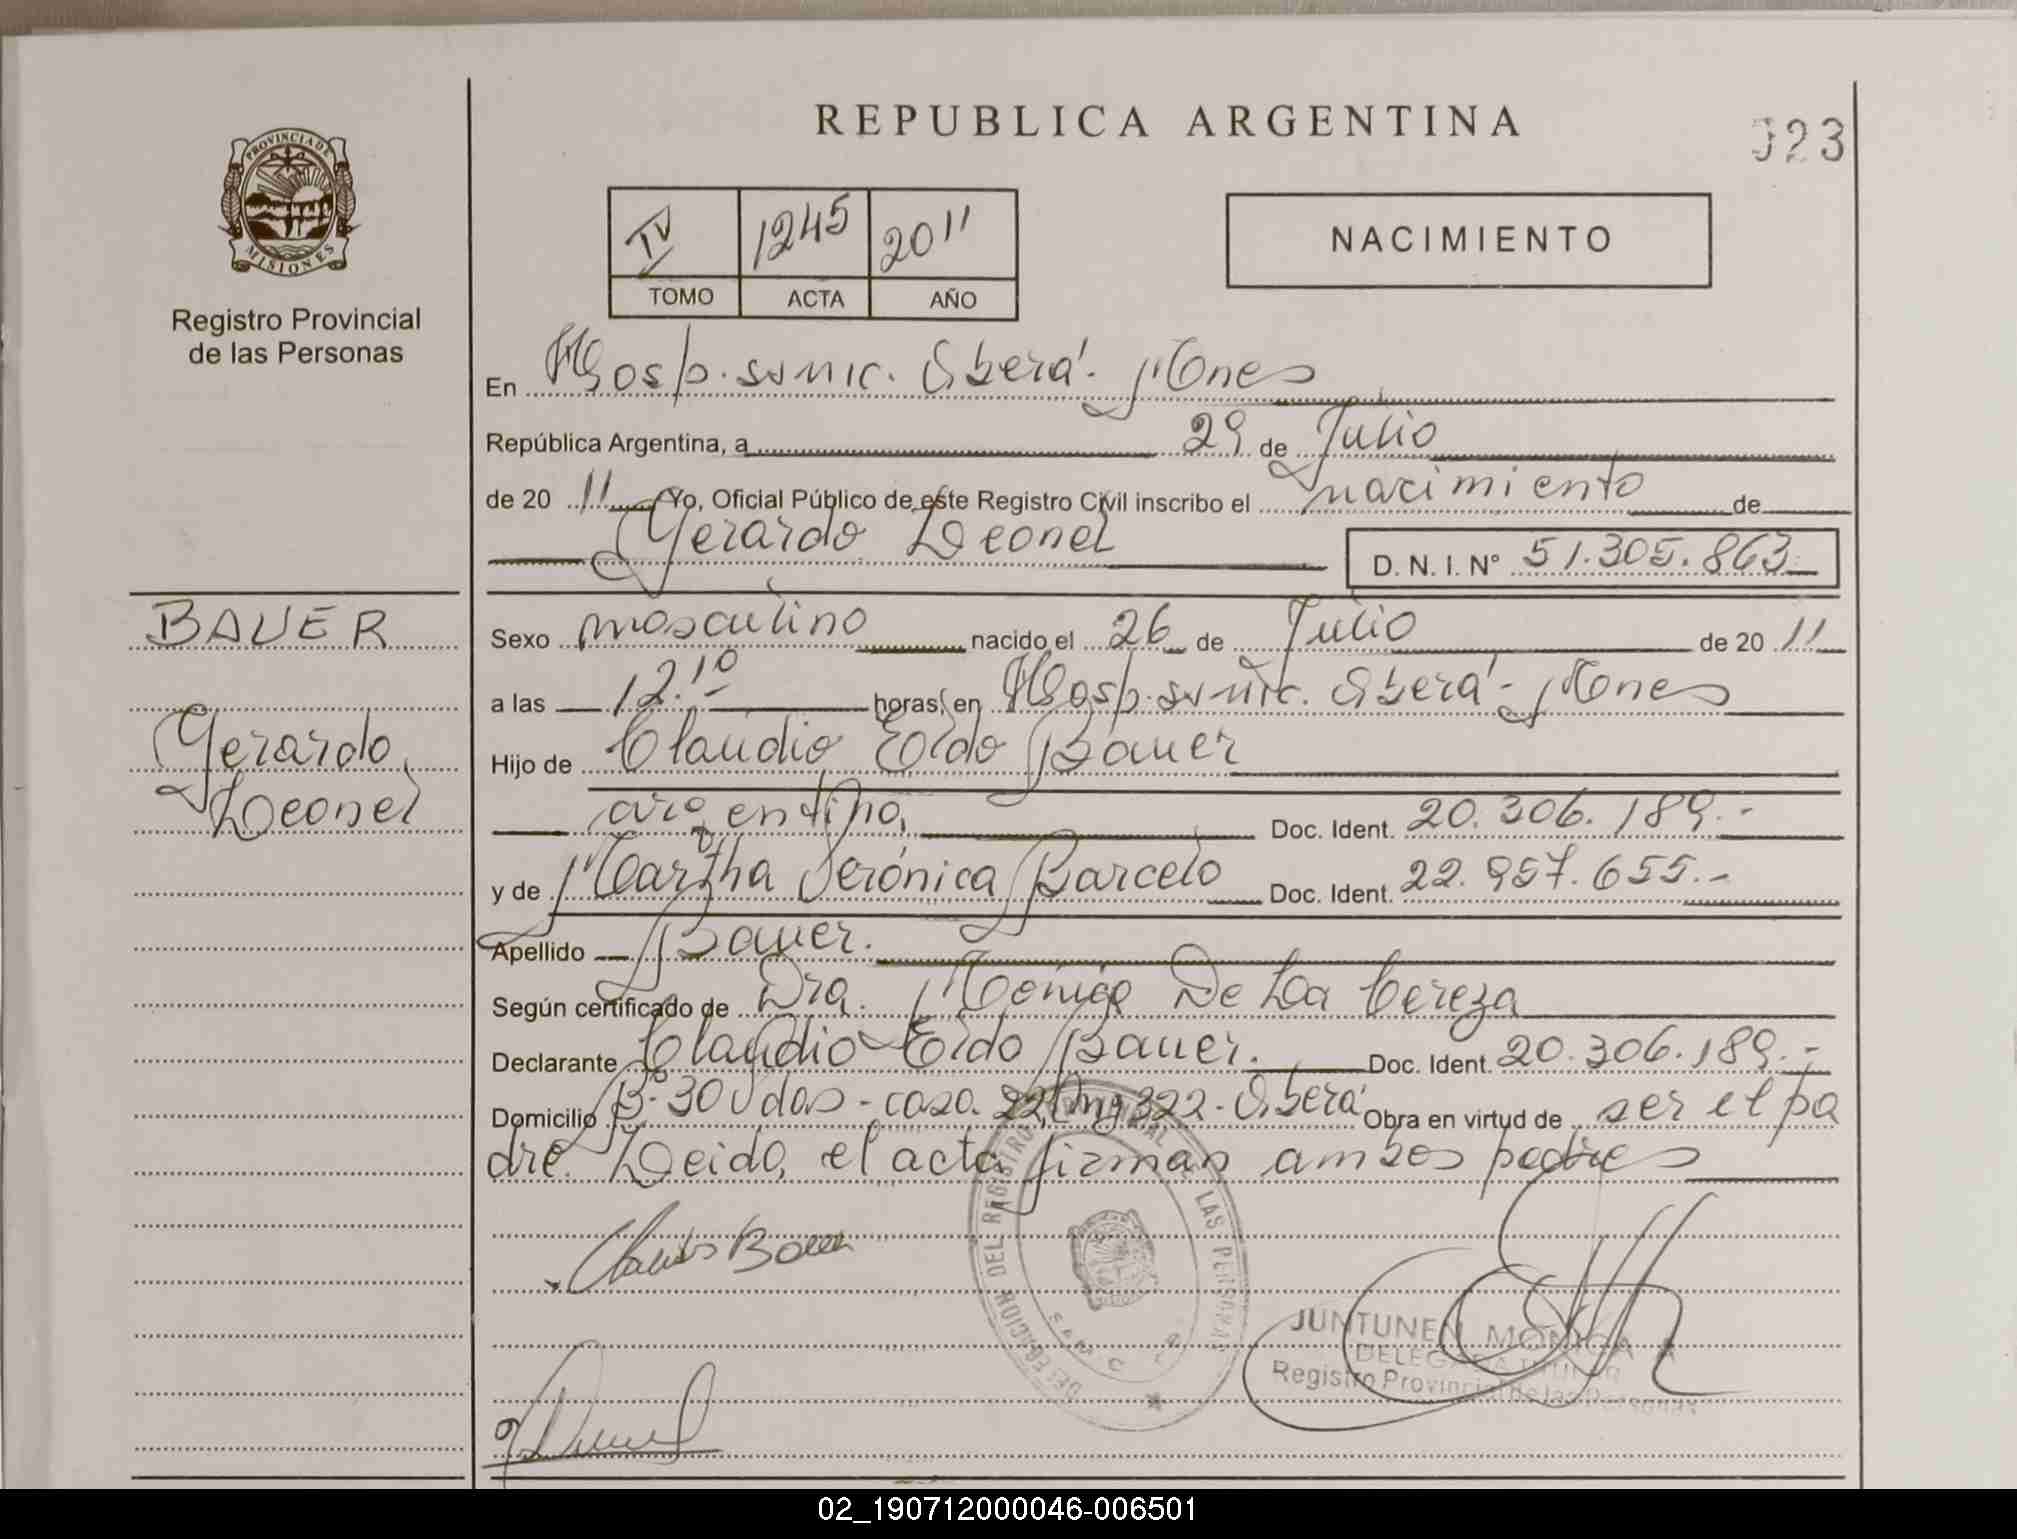 REPUBLICA ARGENTINA
023
PROVINCIA DE
MISIONES
Registro Provincial
de las Personas
IV 1245 2011
TOMO ACTA AÑO
NACIMIENTO
En Hosp. samic. Oberá. Mnes
República Argentina, a 29 de Julio
de 20 11 Yo, Oficial Público de este Registro Civil inscribo el nacimiento de
Gerardo Leonel
D. N. I. N° 51.305.863
BAUER
Gerardo
Leonel
Sexo masculino nacido el 26 de Julio de 20 11
a las 12.10 horas, en Hosp. samic. Oberá - Mnes
Hijo de Claudio Bauer
argentino, Doc. Ident. 20.306.189.-
y de Martha Verónica Barcelo Doc. Ident. 22.957.655.-
Apellido Bauer.
Según certificado de Dra. Mónica De La Cereza
Declarante Claudio Bauer. Doc. Ident. 20.306.189.-
Domicilio B° 30 Vdas - casa 22, 322 - Oberá Obra en virtud de ser el pa
dre. Leido, el acta firman ambos padres
DELEGACION DEL REGISTRO PROVINCIAL DE LAS PERSONAS
JUNTUNEN MONICA A
DELEGADA TITULAR
Registro Provincial de las Personas
02_190712000046-006501